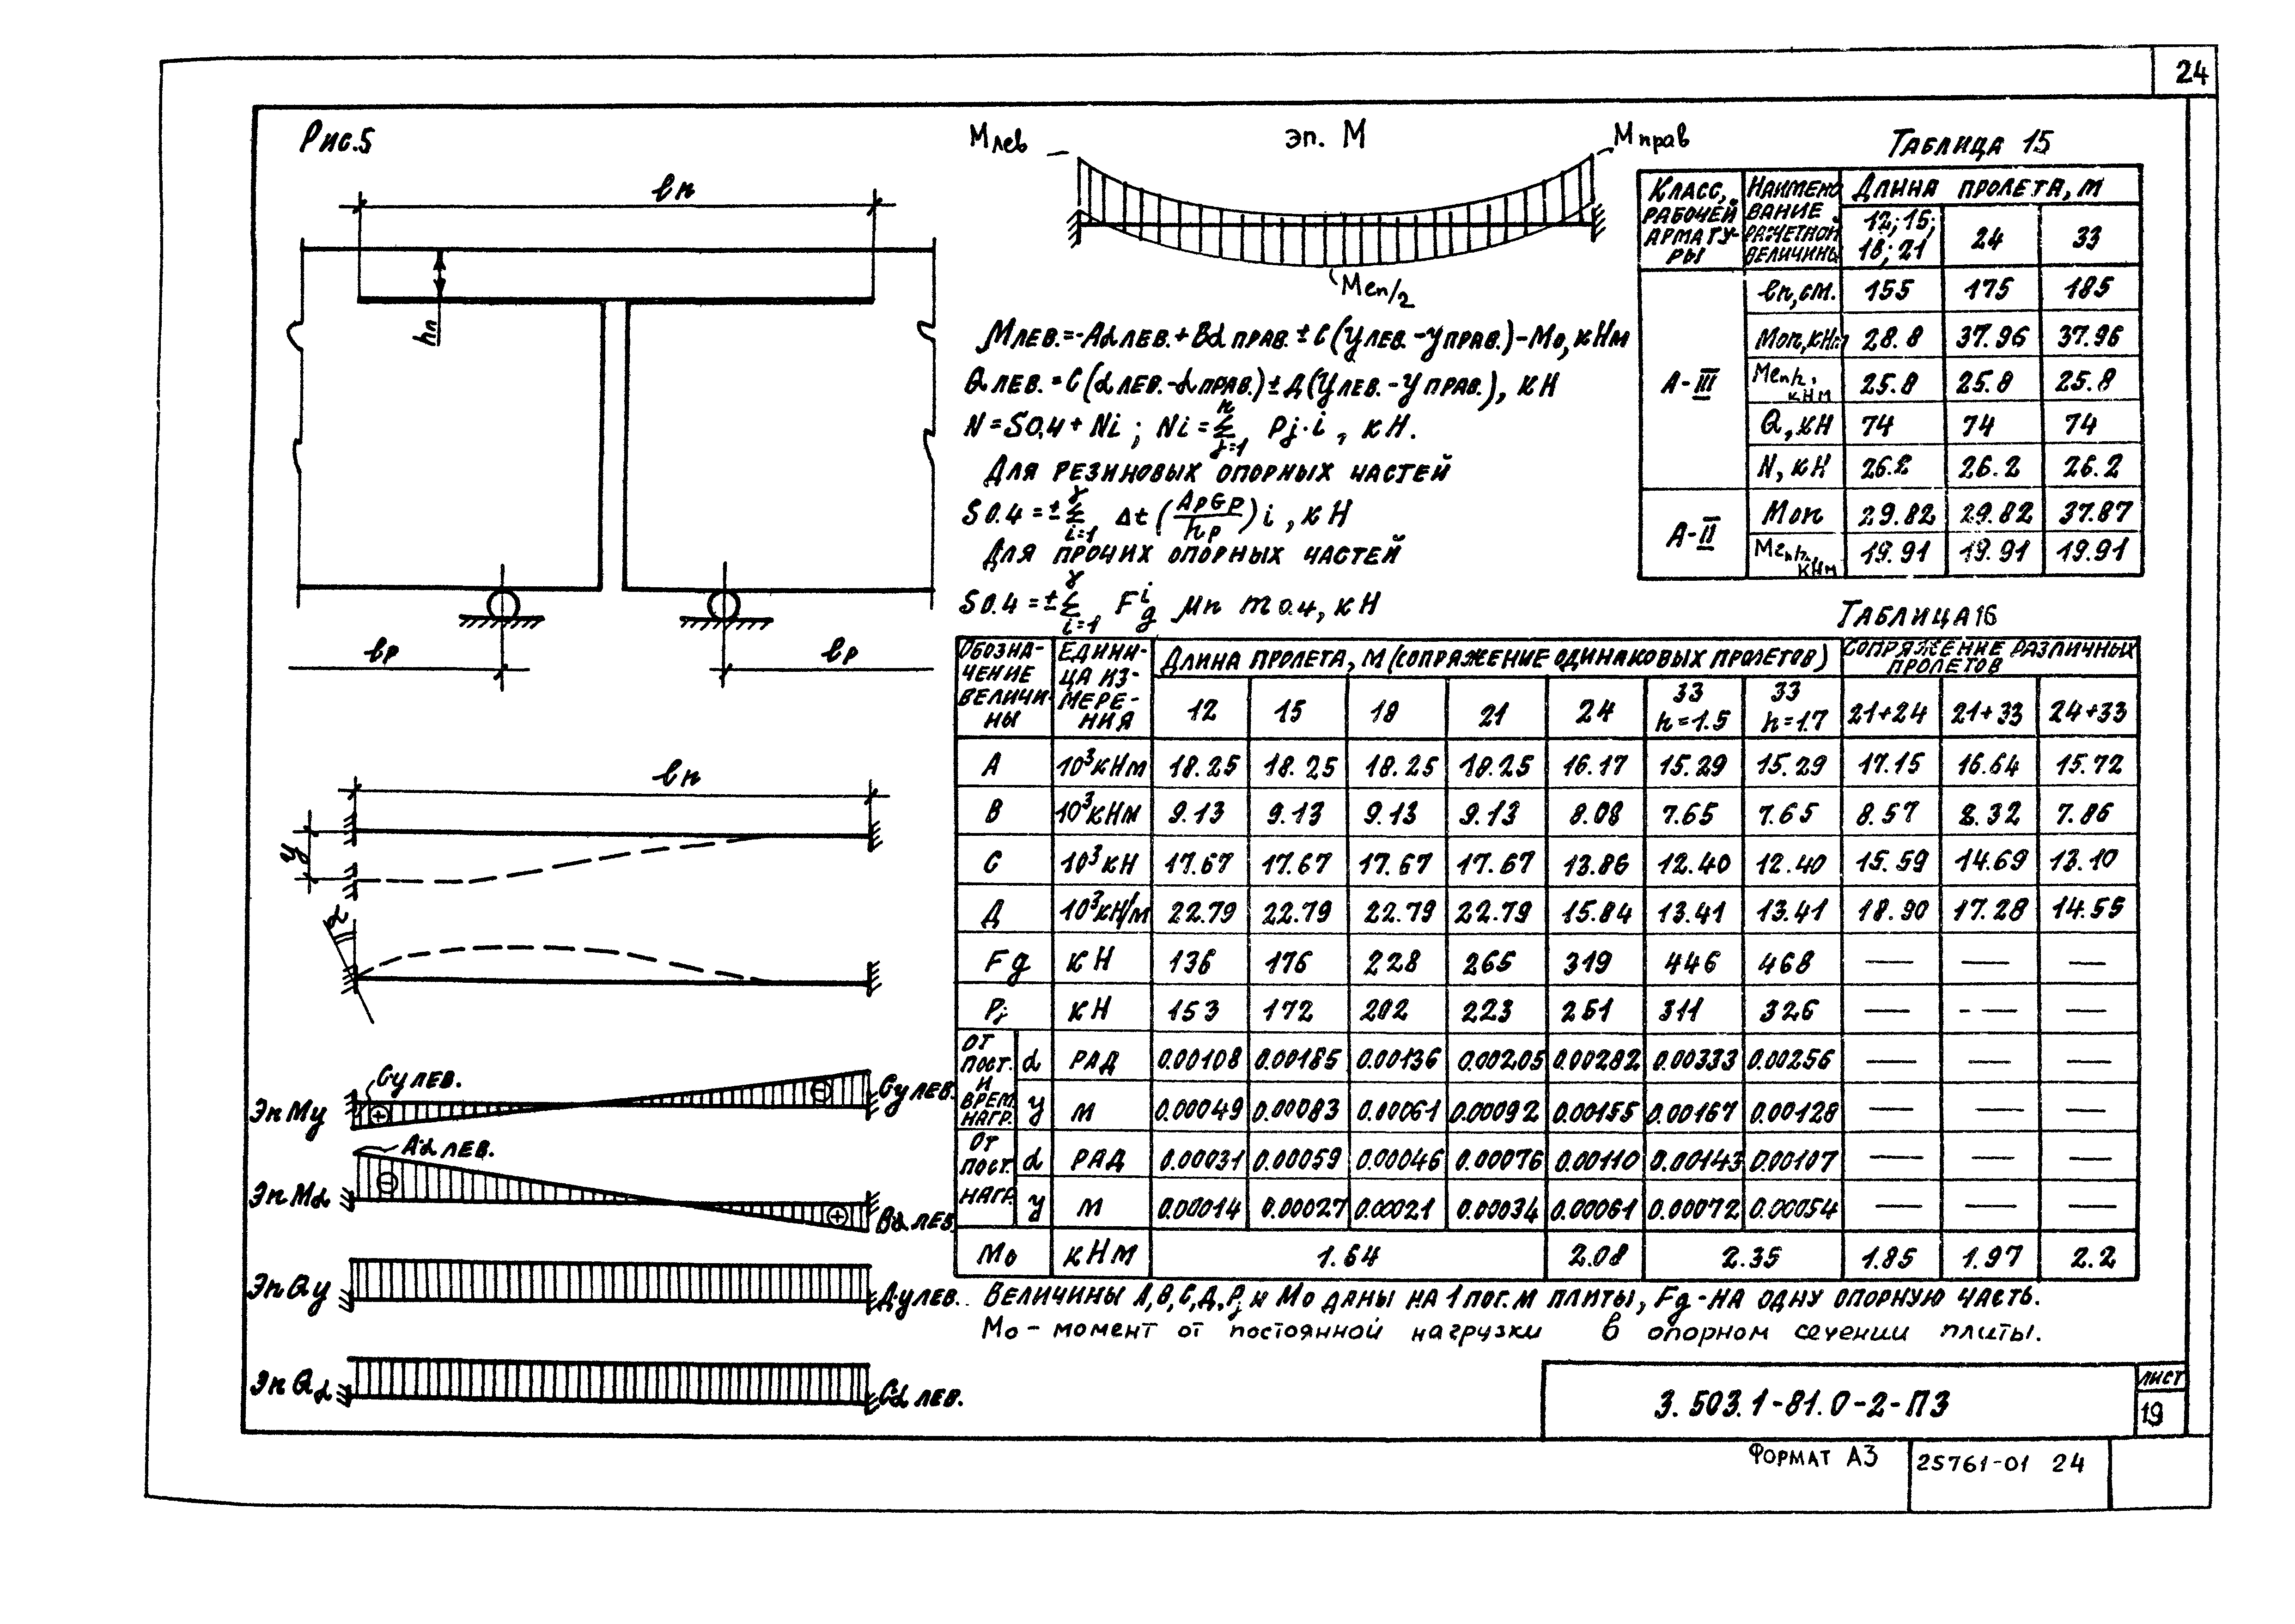 24
Рис.5
ℓп
hп
ℓр
ℓр
ℓп
y
α
Эп Му
Су лев.
Су лев.
Эп Мα
Аα лев.
Вα лев.
Эп Qу
Ду лев.
Эп Qα
Сα лев.
Млев
эп. М
Мправ
Мℓп/2
Млев.=-Аαлев.+Вαправ.±С(улев.-управ.)-М₀, кНм
Qлев.=С(αлев.-αправ.)±Д(улев.-управ.), кН
N=S0,4+Ni; Ni=Σ Pj·i, кН.
n
j=1
Для резиновых опорных частей
S0.4=±Σ Δt(АрGр/hр)i, кН
γ
i=1
Для прочих опорных частей
S0.4=±Σ Fgⁱ μп m0.4, кН
γ
i=1
Таблица 15
Класс, рабочей арматуры | Наименование расчетной величины | Длина пролета, м
12; 15; 18; 21 | 24 | 33
А-III | ℓп, см. | 155 | 175 | 185
Моп, кНм | 28.8 | 37.96 | 37.96
Мℓп/2, кНм | 25.8 | 25.8 | 25.8
Q, кН | 74 | 74 | 74
N, кН | 26.2 | 26.2 | 26.2
А-II | Моп | 29.82 | 29.82 | 37.87
Мℓп/2, кНм | 19.91 | 19.91 | 19.91
Таблица 16
Обозначение величины | Единица измерения | Длина пролета, м (сопряжение одинаковых пролетов) | Сопряжение различных пролетов
12 | 15 | 18 | 21 | 24 | 33 h=1.5 | 33 h=1.7 | 21+24 | 21+33 | 24+33
А | 10³кНм | 18.25 | 18.25 | 18.25 | 18.25 | 16.17 | 15.29 | 15.29 | 17.15 | 16.64 | 15.72
В | 10³кНм | 9.13 | 9.13 | 9.13 | 9.13 | 8.08 | 7.65 | 7.65 | 8.57 | 8.32 | 7.86
С | 10³кН | 17.67 | 17.67 | 17.67 | 17.67 | 13.86 | 12.40 | 12.40 | 15.59 | 14.69 | 13.10
Д | 10³кН/м | 22.79 | 22.79 | 22.79 | 22.79 | 15.84 | 13.41 | 13.41 | 18.90 | 17.28 | 14.55
Fg | кН | 136 | 176 | 228 | 265 | 319 | 446 | 468 | — | — | —
Pj | кН | 153 | 172 | 202 | 223 | 251 | 311 | 326 | — | — | —
От пост. и врем. нагр. | α | рад | 0.00108 | 0.00185 | 0.00136 | 0.00205 | 0.00282 | 0.00333 | 0.00256 | — | — | —
y | м | 0.00049 | 0.00083 | 0.00061 | 0.00092 | 0.00155 | 0.00167 | 0.00128 | — | — | —
От пост. нагр. | α | рад | 0.00031 | 0.00059 | 0.00046 | 0.00076 | 0.00110 | 0.00143 | 0.00107 | — | — | —
y | м | 0.00014 | 0.00027 | 0.00021 | 0.00034 | 0.00061 | 0.00072 | 0.00054 | — | — | —
М₀ | кНм | 1.64 | 2.08 | 2.35 | 1.85 | 1.97 | 2.2
Величины А, В, С, Д, Pj и М₀ даны на 1 пог.м плиты, Fg - на одну опорную часть.
М₀ - момент от постоянной нагрузки в опорном сечении плиты.
3.503.1-81.0-2-ПЗ
лист
19
Формат А3
25761-01 24